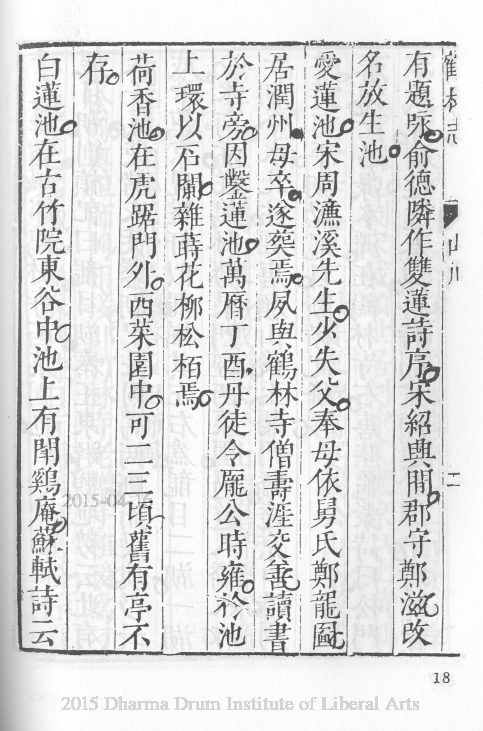 鶴林志 山川 二
有題詠俞德隣作雙蓮詩序宋紹興間郡守鄭滋改
名放生池
愛蓮池宋周濂溪先生少失父奉母依舅氏鄭龍圖
居潤州母卒遂葬焉夙與鶴林寺僧壽涯交善讀書
於寺旁因鑿蓮池萬曆丁酉丹徒令龐公時雍於池
上環以石闌雜蒔花柳松栢焉
荷香池在虎踞門外西菜園中可二三頃舊有亭不
存
白蓮池在古竹院東谷中池上有聞鷄庵蘇軾詩云
2015-04
18
2015 Dharma Drum Institute of Liberal Arts